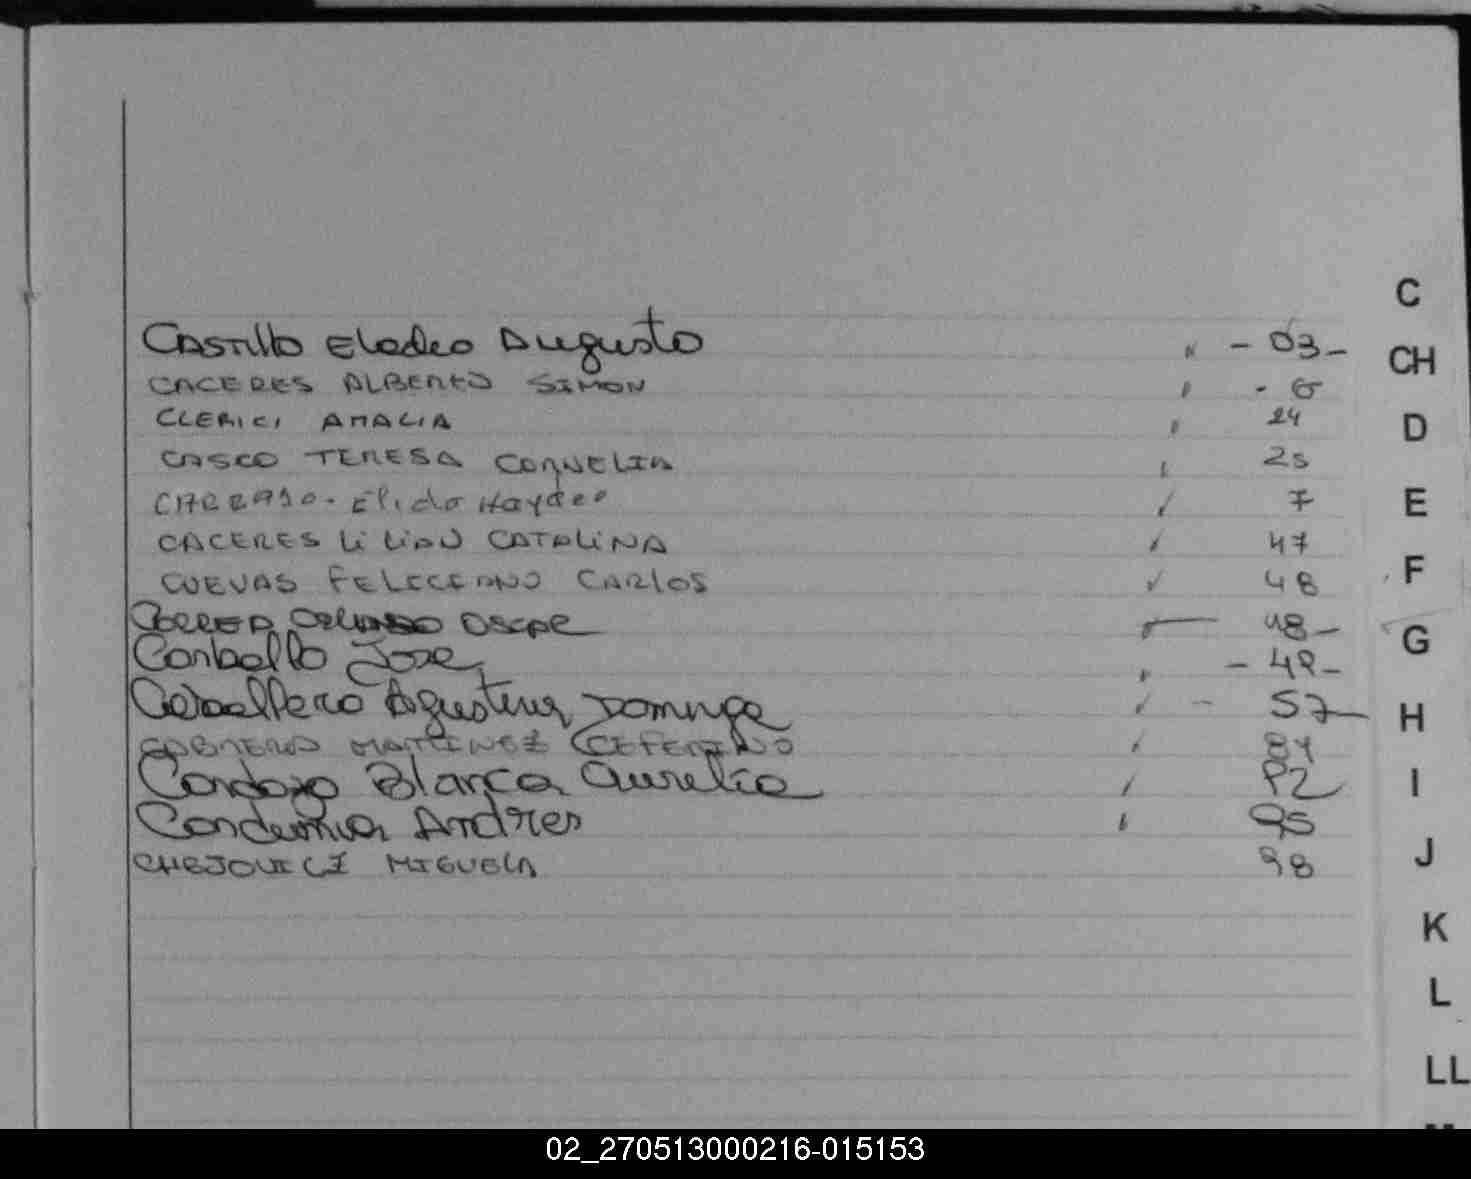 C
CASTILLO Eladio Augusto - 03 -
CH
CACERES ALBERTO SIMON - 6
CLERICI AMALIA 24
D
CASCO TERESA CORNELIA 25
Elida Haydee 7
E
CACERES LILIAN CATALINA 47
CUEVAS FELICIANO CARLOS 48
F
CORREA ORLANDO OSCAR 48 -
G
Carballo Jose - 48 -
Caballero Agustina Dominga - 57
H
MARTINEZ CEFERINO
Cardozo Blanca Aurelia 92
I
Andres 95
CHEJOVICZ MIGUELA 98
J
K
L
LL
02_270513000216-015153